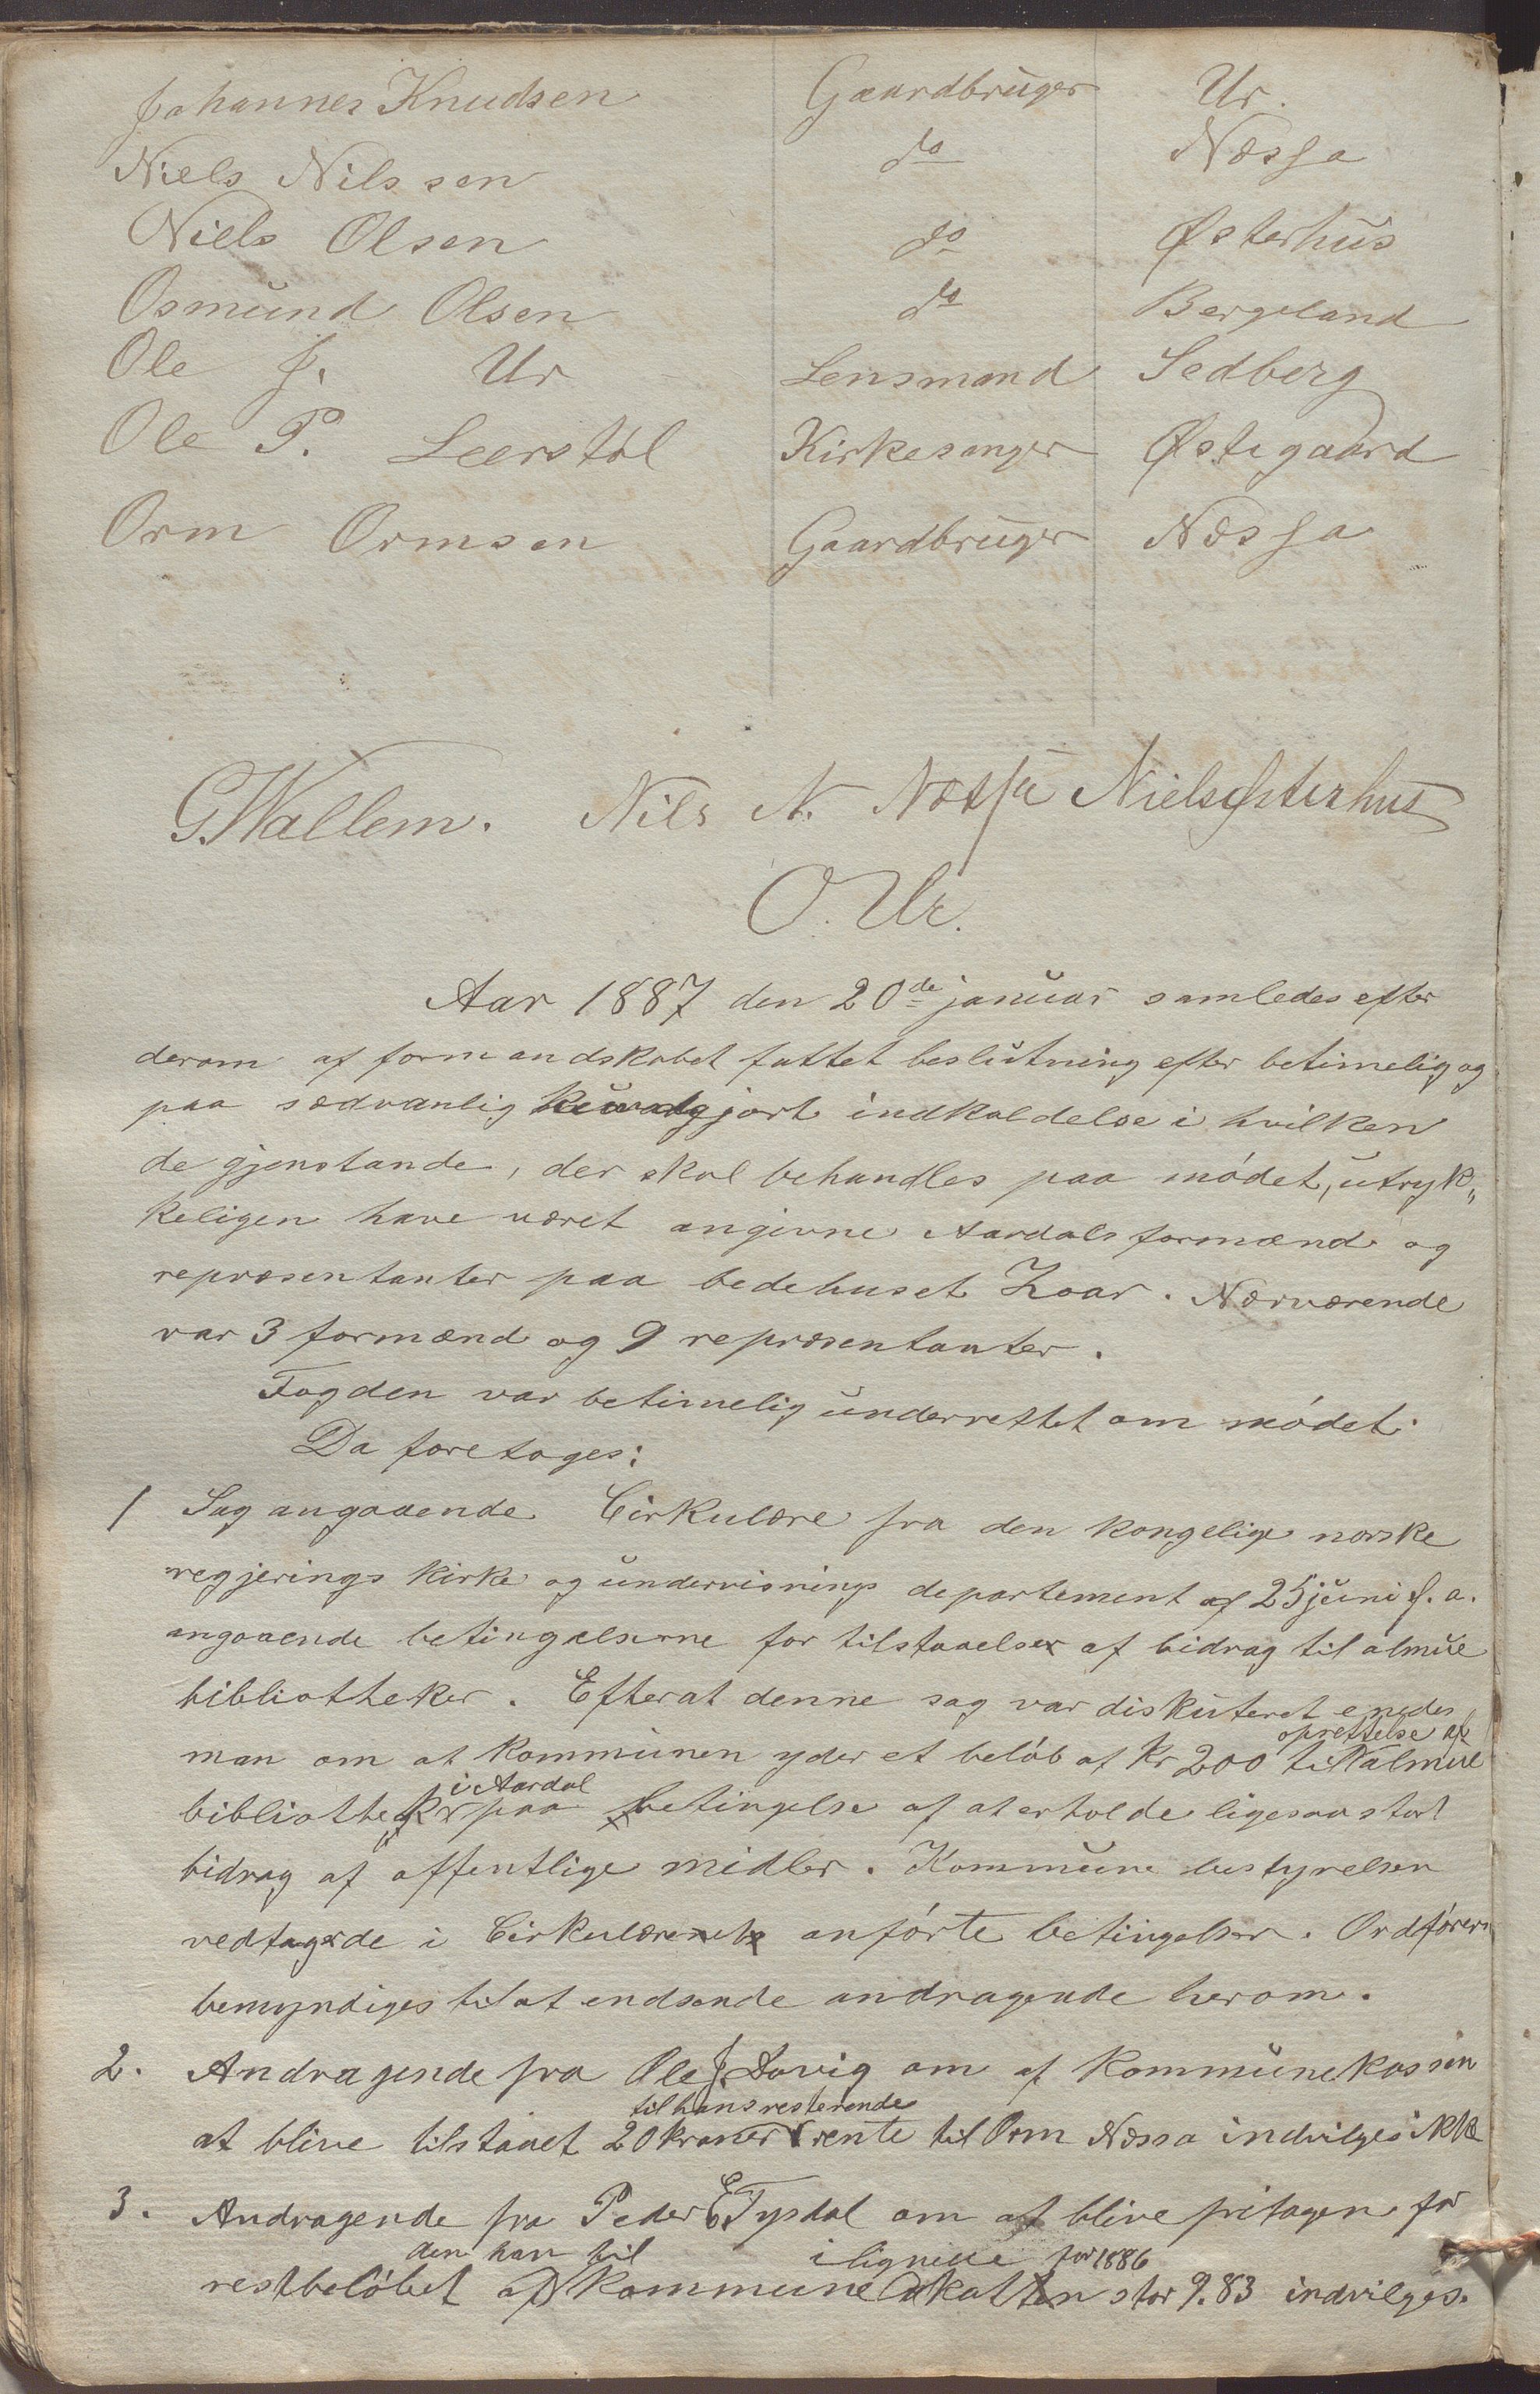 Johannes Knudsen Gaardbruger Ur.
Niels Nilssen do Næssa
Niels Olsen do Østerhus
Osmund Olsen do Bergeland
Ole J. Ur Lensmand Sedberg
Ole P. Leerstøl Kirkesanger Østegaard
Orm Ormsen Gaardbruger Næssa
G. Wallem. Nils N. Næssa Niels Østerhus
O. Ur.
Aar 1887 den 20de januar samledes efter
derom af formandskabet fattet beslutning efter betimelig og
paa sædvanlig kundgjort indkaldelse i hvilken
de gjenstande, der skal behandles paa mødet, utryk„
keligen have været angivne Aardals formænd og
repræsentanter paa bedehuset Zoar. Nærværende
var 3 formænd og 9 repræsentanter.
Fogden var betimelig underrettet om mødet.
Da foretoges:
1 Sag angaaende Cirkulære fra den kongelige norske
regjerings kirke og undervisnings departement af 25 juni f. a.
angaaende betingelserne for tilstaaelse af bidrag til almue
bibliotheker. Efterat denne sag var diskuteret enedes
man om at kommunen yder et beløb af Kr 200 til oprettelse af almue
bibliothek i Aardal paa betingelse af at erholde ligesaa stort
bidrag af offentlige midler. Kommune bestyrelsen
vedtager de i Cirkulæret anførte betingelser. Ordføreren
bemyndiges til at endsende andragende herom.
2. Andragende fra Ole J. Svavig om af kommunekassen
at blive tilstaaet 20 kroner til hans resterende rente til Orm Næssa indvilges ikke
3. Andragende fra Peder E Tysdal om at blive fritagen for
restbeløbet af den han til kommune ilignede skat for 1886 stor 9.83 indvilges.